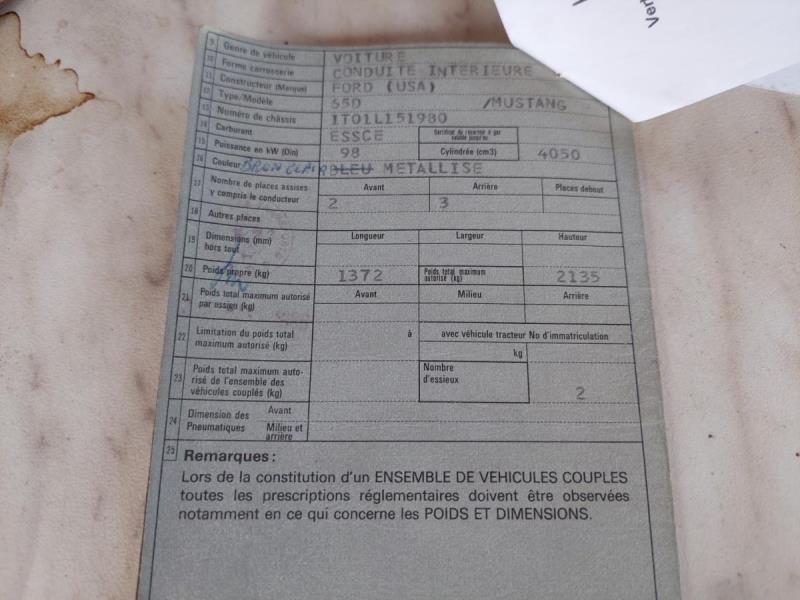 Ver
9 Genre de véhicule VOITURE
10 Forme carrosserie CONDUITE INTERIEURE
11 Constructeur (Marque) FORD (USA)
12 Type/Modèle 65D /MUSTANG
13 Numéro de châssis 1T01L151980
14 Carburant ESSCE
15 Puissance en kW (Din) 98 Cylindrée (cm3) 4050
16 Couleur BRUN CLAIR BLEU METALLISE
17 Nombre de places assises y compris le conducteur
Avant Arrière Places debout
2 3
18 Autres places
19 Dimensions (mm) hors tout
Longueur Largeur Hauteur
20 Poids propre (kg) 1372 Poids total maximum autorisé (kg) 2135
21 Poids total maximum autorisé par essieu (kg)
Avant Milieu Arrière
22 Limitation du poids total maximum autorisé (kg)
à avec véhicule tracteur No d'immatriculation
kg
23 Poids total maximum auto-
risé de l'ensemble des
véhicules couplés (kg)
Nombre
d'essieux
2
24 Dimension des
Pneumatiques
Avant
Milieu et
arrière
25 Remarques :
Lors de la constitution d'un ENSEMBLE DE VEHICULES COUPLES
toutes les prescriptions réglementaires doivent être observées
notamment en ce qui concerne les POIDS ET DIMENSIONS.